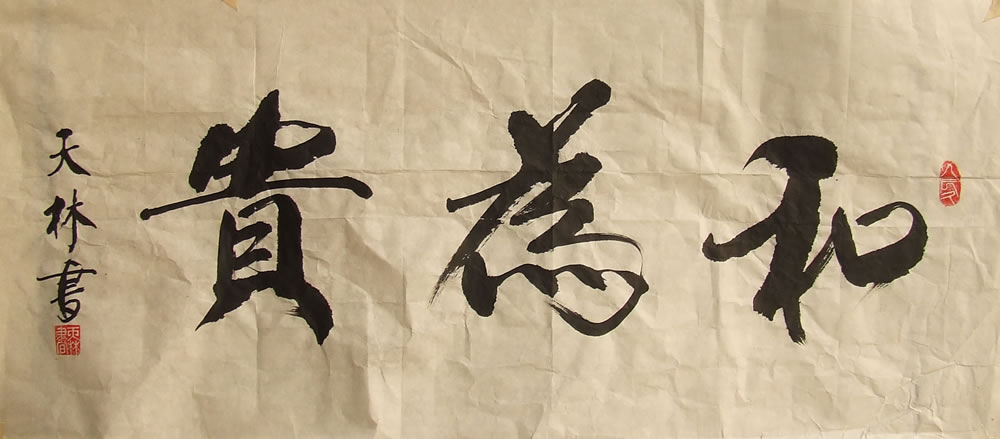 和為貴
天林書